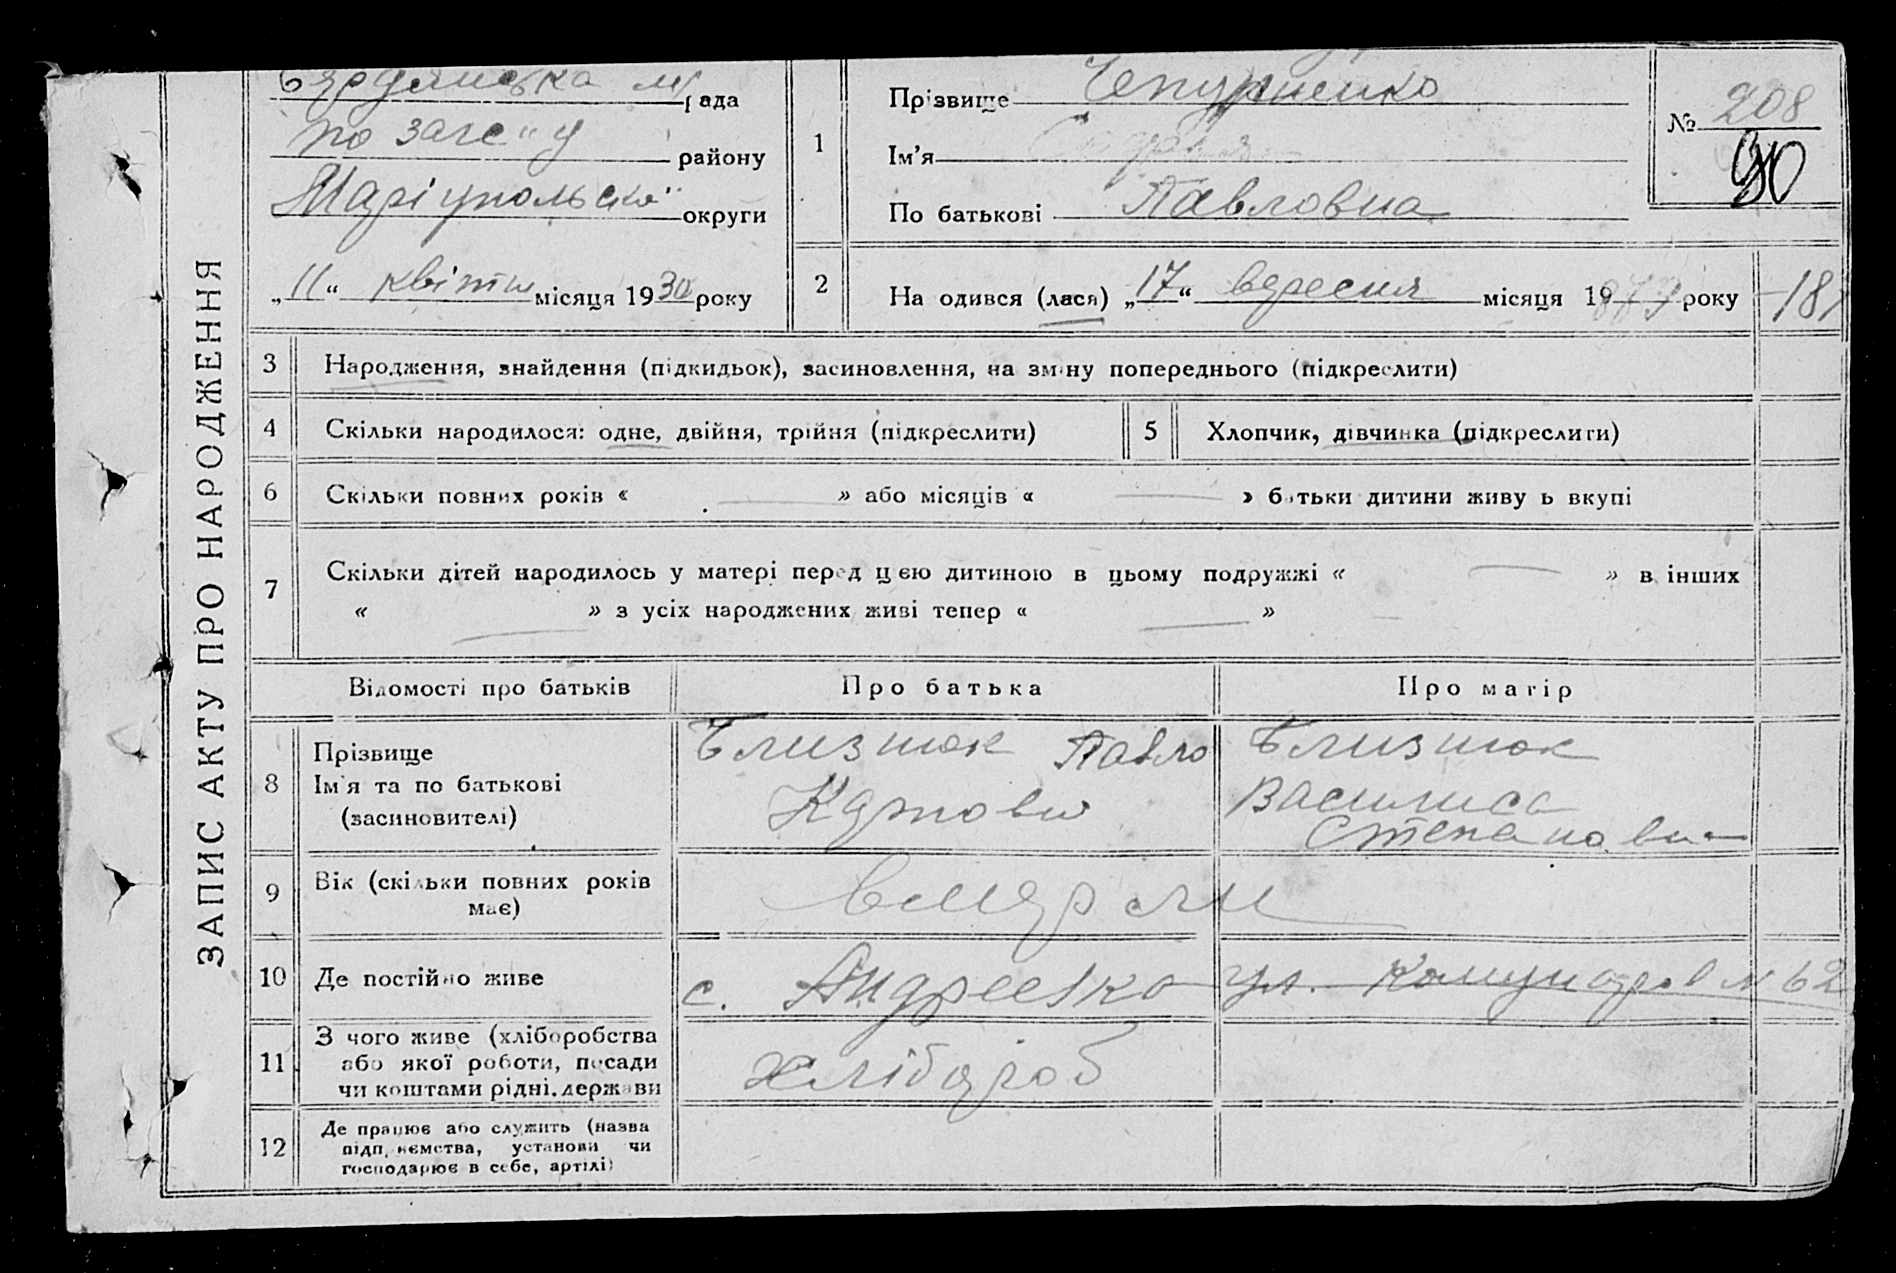 ЗАПИС АКТУ ПРО НАРОДЖЕННЯ
Бердянська м рада
району
Маріупольської округи
„11“ квітня місяця 1930 року
1
Прізвище Чепурненко
Ім'я
По батькові Павловна
№ 208
90
2
Народився (лася) „17“ вересня місяця 19 року
187
3 Народження, знайдення (підкидьок), засиновлення, на зміну попереднього (підкреслити)
4 Скільки народилося: одне, двійня, трійня (підкреслити)
5 Хлопчик, дівчинка (підкреслити)
6 Скільки повних років « — » або місяців « — » батьки дитини живуть вкупі
7 Скільки дітей народилось у матері перед цією дитиною в цьому подружжі « — » в інших
« — » з усіх народжених живі тепер « — »
Відомості про батьків
Про батька
Про матір
8 Прізвище
Ім'я та по батькові
(засиновителі)
Близнюк Павло
Карпович
Близнюк
Василиса
Степановна
9 Вік (скільки повних років
має)
вмерли
10 Де постійно живе
с. Андреевка ул. Комунаров № 62
11 З чого живе (хліборобства
або якої роботи, посади
чи коштами рідні, держави
хлібороб
12 Де працює або служить (назва
підприємства, установи чи
господарює в себе, артілі)